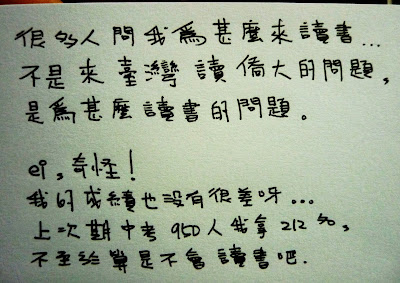 很多人問我為甚麼來讀書...
不是來臺灣讀僑大的問題，
是為甚麼讀書的問題。
ei，奇怪！
我的成績也沒有很差呀...
上次期中考950人我拿212名，
不至於算是不會讀書吧.